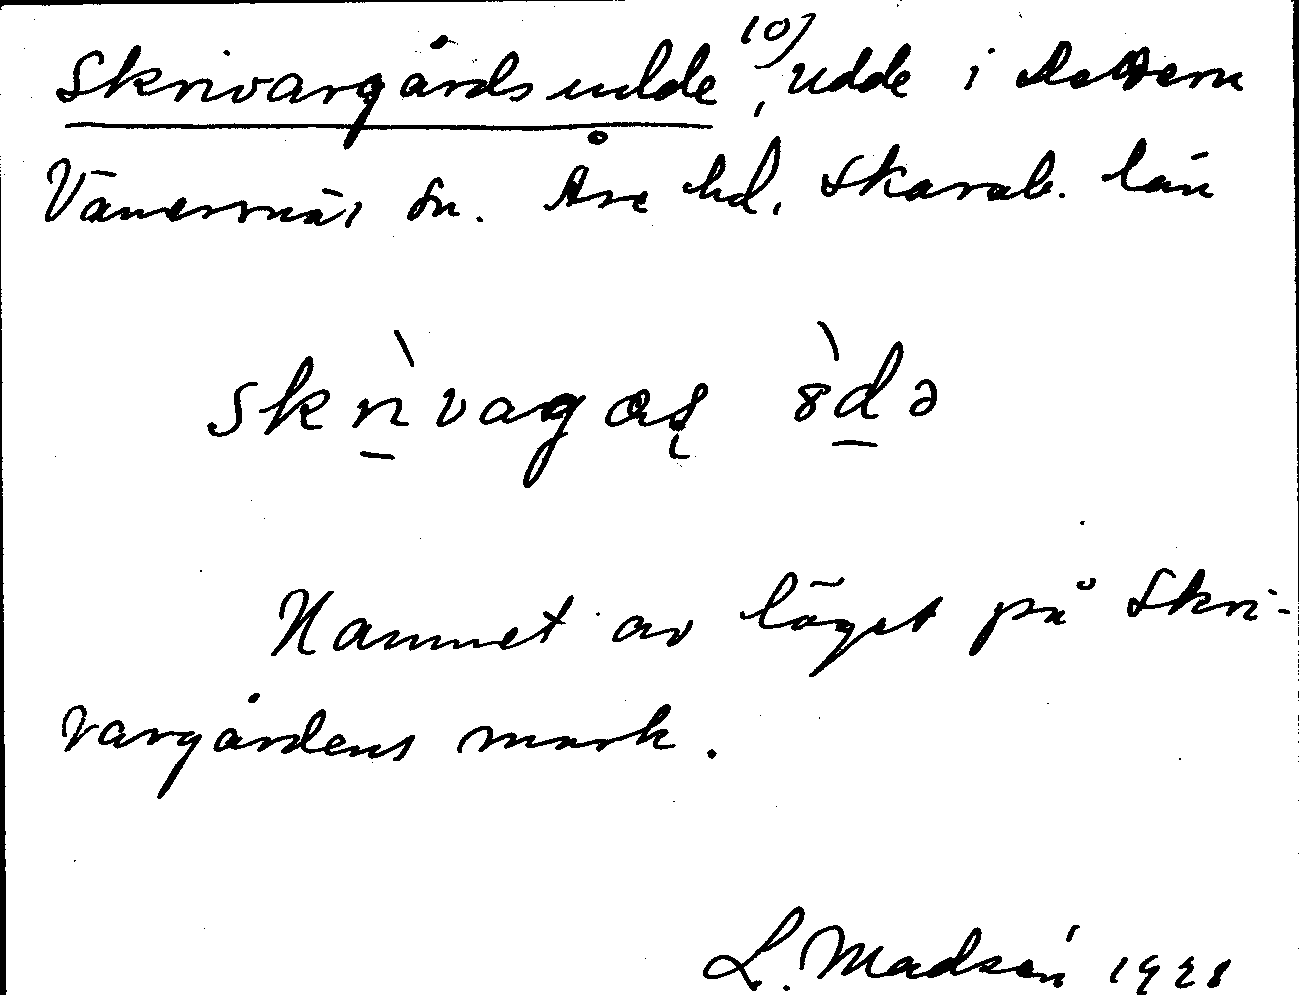 Skrivargårdsudde 10), udde i Dettern
Vänersnäs sn. Åse hd, Skarab. län
skrìvagaș 8̀də
Namnet av läget på Skri-
vargårdens mark.
L. Madsén 1928